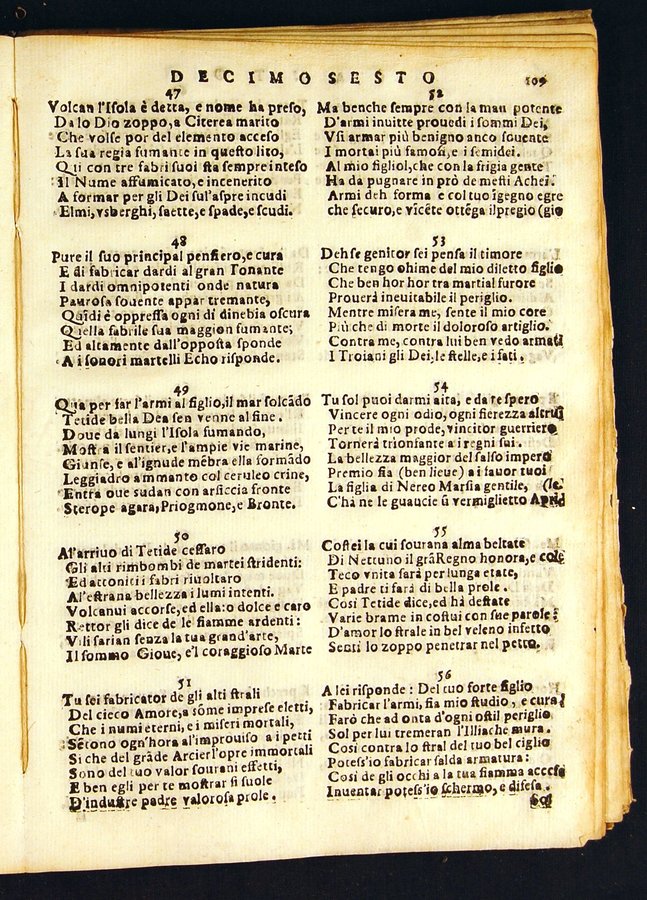 DECIMOSESTO
109
47
Volcan l'Isola è detta, e nome ha preso,
Da lo Dio zoppo, a Citerea marito
Che volse por del elemento acceso
La sua regia fumante in questo lito,
Qui con tre fabri suoi sta sempre inteso
Il Nume affumicato, e incenerito
A formar per gli Dei sul'aspre incudi
Elmi, vsberghi, saette, e spade, e scudi.
48
Pure il suo principal pensiero, e cura
E di fabricar dardi al gran Tonante
I dardi omnipotenti onde natura
Paurosa souente appar tremante,
Quĩdi è oppressa ogni dì di nebia oscura
Quella fabrile sua maggion fumante;
Ed altamente dall'opposta sponde
A i sonori martelli Echo risponde.
49
Qua per far l'armi al figlio, il mar solcãdo
Tetide bella Dea sen venne al fine.
Doue da lungi l'Isola fumando,
Mostra il sentier, e l'ampie vie marine,
Giunse, e al'ignude mẽbra ella formãdo
Leggiadro ammanto col ceruleo crine,
Entra oue sudan con arsiccia fronte
Sterope agara, Priogmone, e Bronte.
50
Al'arriuo di Tetide cessaro
Gli alti rimbombi de martei stridenti:
Ed attoniti i fabri riuoltaro
Al'estrana bellezza i lumi intenti.
Volcanui accorse, ed ella: o dolce e caro
Rettor gli dice de le fiamme ardenti:
Vili sarian senza la tua grand'arte,
Il sommo Gioue, e'l coraggioso Marte
51
Tu sei fabricator de gli alti strali
Del cieco Amore, a sõme imprese eletti,
Che i numi eterni, e i miseri mortali,
Sẽtono ogn'hora al'improuiso a i petti
Si che del grãde Arcier l'opre immortali
Sono del tuo valor sourani effetti,
E ben egli per te mostrar si suole
D'industre padre valorosa prole.
52
Ma benche sempre con la man potente
D'armi inuitte prouedi i sommi Dei,
Vsi armar più benigno anco souente
I mortai più famosi, e i semidei.
Al mio figliol, che con la frigia gente
Ha da pugnare in prò de mesti Achei.
Armi deh forma e col tuo ĩgegno egre
che securo, e vicẽte ottẽga il pregio (gio
53
Deh se genitor sei pensa il timore
Che tengo ohime del mio diletto figlio
Che ben hor hor tra martial furore
Prouerà ineuitabile il periglio.
Mentre misera me, sente il mio core
Più che di morte il doloroso artiglio.
Contra me, contra lui ben vedo armati
I Troiani gli Dei, le stelle, e i fati.
54
Tu sol puoi darmi aita, e da te spero
Vincere ogni odio, ogni fierezza altrui
Per te il mio prode, vincitor guerriero
Tornerà trionfante a i regni sui.
La bellezza maggior del salso impero
Premio fia (ben lieue) a i fauor tuoi
La figlia di Nereo Marsia gentile, (le.
C'hà ne le guancie ũ vermiglietto Apri
55
Costei la cui sourana alma beltate
Di Nettuno il grãRegno honora, e cole
Teco vnita sarà per lunga etate,
E padre ti farà di bella prole.
Così Tetide dice, ed hà destate
Varie brame in costui con sue parole:
D'amor lo strale in bel veleno infetto
Sentì lo zoppo penetrar nel petto.
56
A lei risponde: Del tuo forte figlio
Fabricar l'armi, fia mio studio, e cura
Farò che ad onta d'ogni ostil periglio
Sol per lui tremeran l'Illiache mura.
Cosi contro lo stral del tuo bel ciglio
Potess'io fabricar salda armatura:
Così de gli occhi a la tua fiamma accesa
Inuentar potess'io schermo, e difesa.